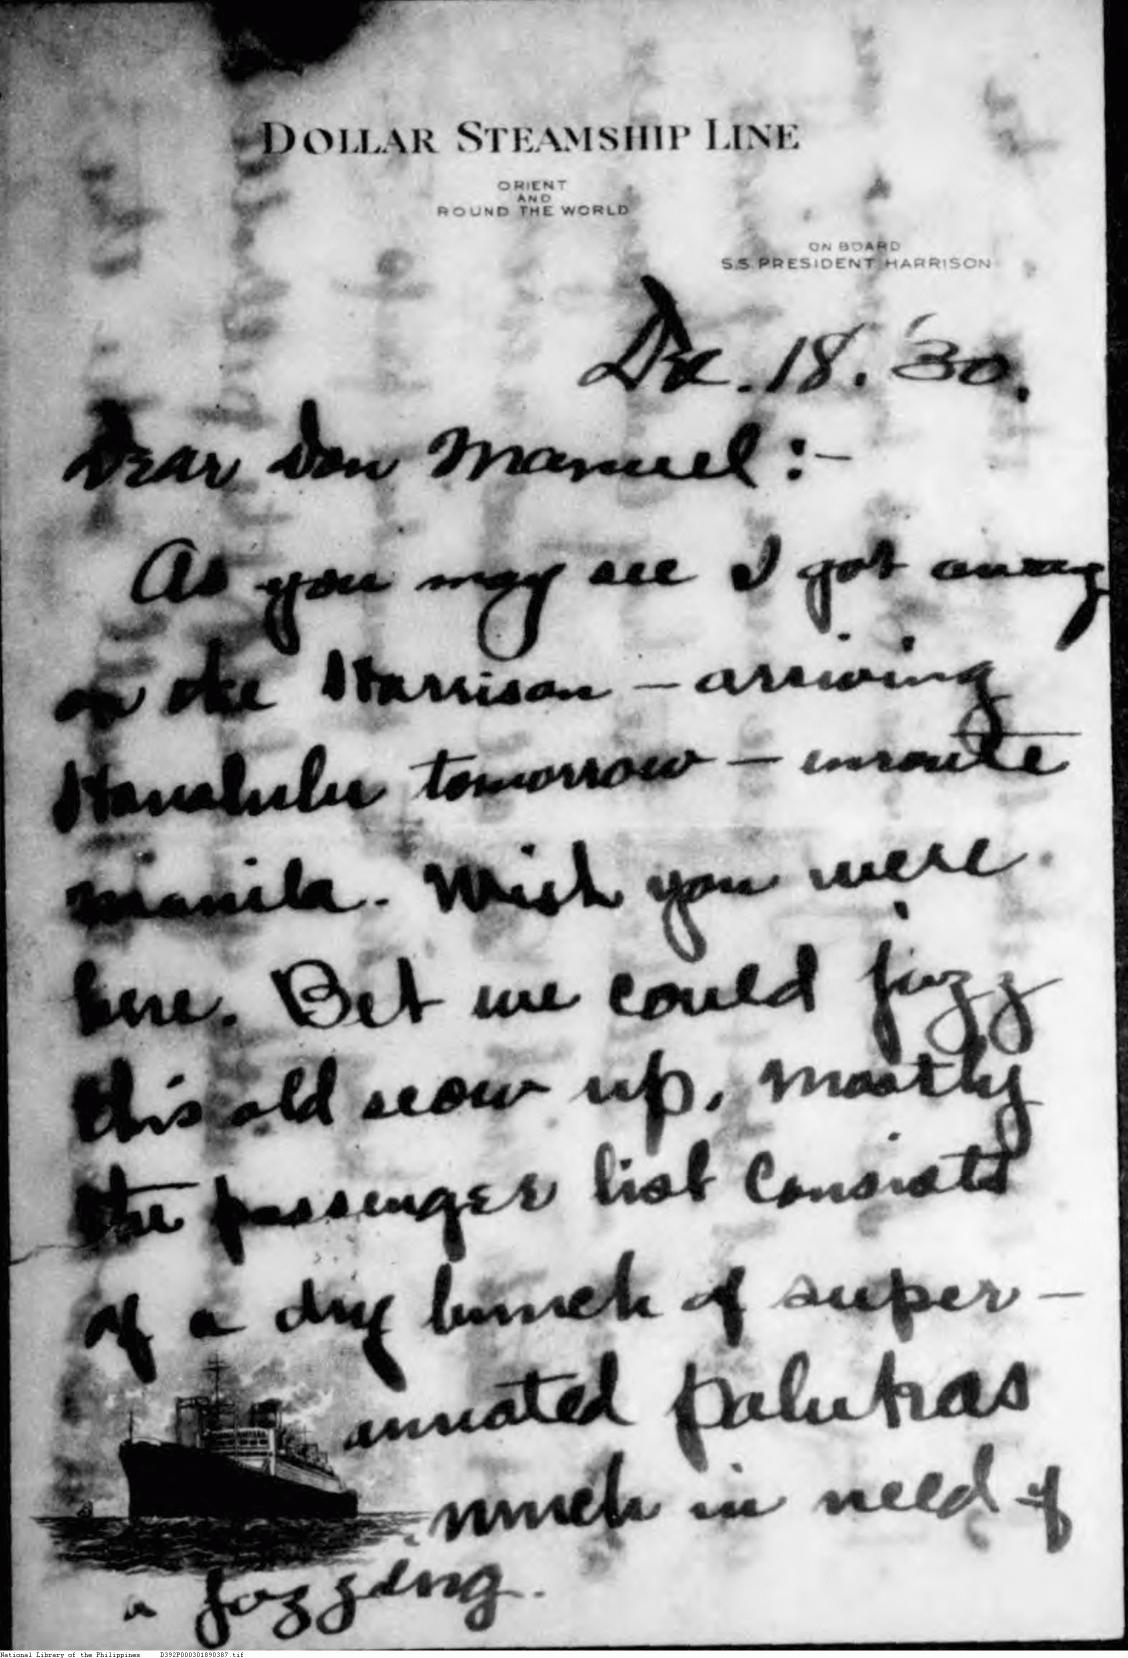 DOLLAR STEAMSHIP LINE
ORIENT
AND
ROUND THE WORLD
ON BOARD
S.S. PRESIDENT HARRISON
Dec. 18. '30.
Dear Don Manuel :-
As you may see I got away
on the Harrison - arriving
Honolulu tomorrow - enroute
Manila. Wish you were
here. Bet we could jazz
this old scow up. Mostly
the passenger list consists
of a dry bunch of super-
annuated palukas
much in need of
a jazzing.
National Library of the Philippines D392P000301890387.tif